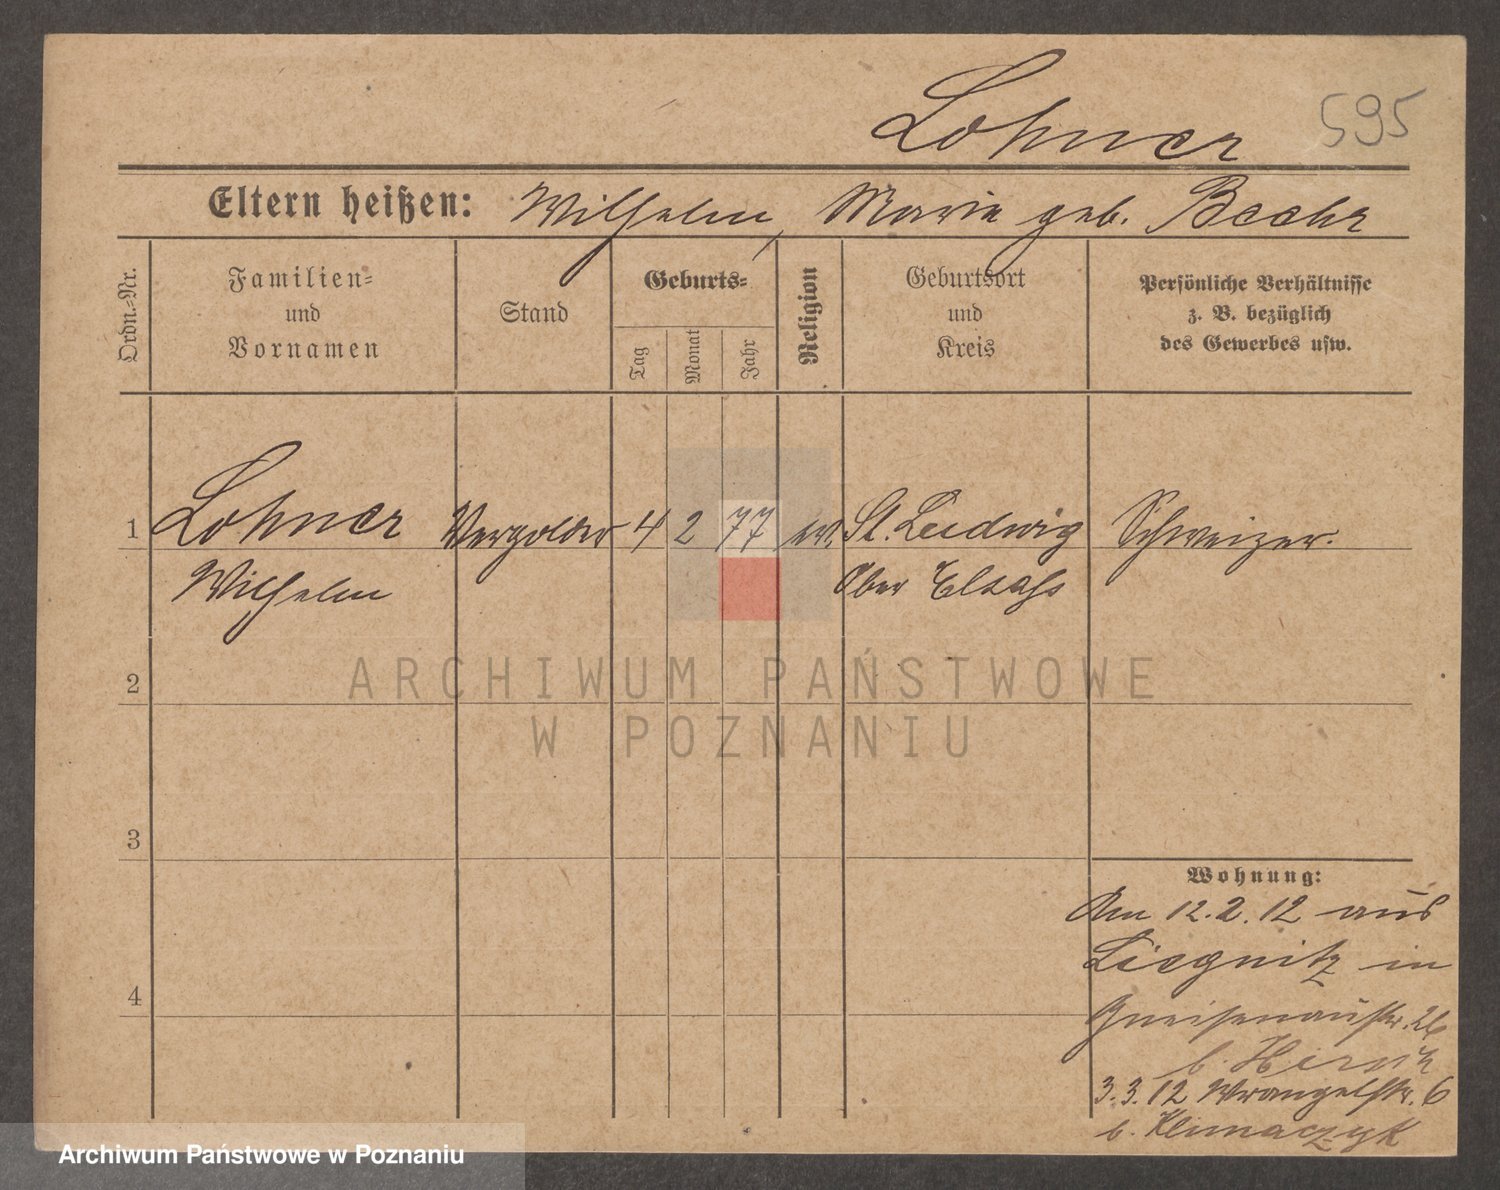 Lohner 595
Eltern heißen: Wilhelm, Marie geb. Beehr
Ordn.-Nr.
Familien-
und
Vornamen
Stand
Geburts-
Tag
Monat
Jahr
Religion
Geburtsort
und
Kreis
Persönliche Verhältnisse
z. B. bezüglich
des Gewerbes usw.
1 Lohner Vergolder 4 2 77 ev. St. Ludwig Schweizer.
Wilhelm Ober Elsass
2
3
4
Wohnung:
Am 12.2.12 aus
Liegnitz in
Gneisenaustr. 26
b.
3.3.12 Wrangelstr. 6
b. Klimaczyk
ARCHIWUM PAŃSTWOWE
W POZNANIU
Archiwum Państwowe w Poznaniu